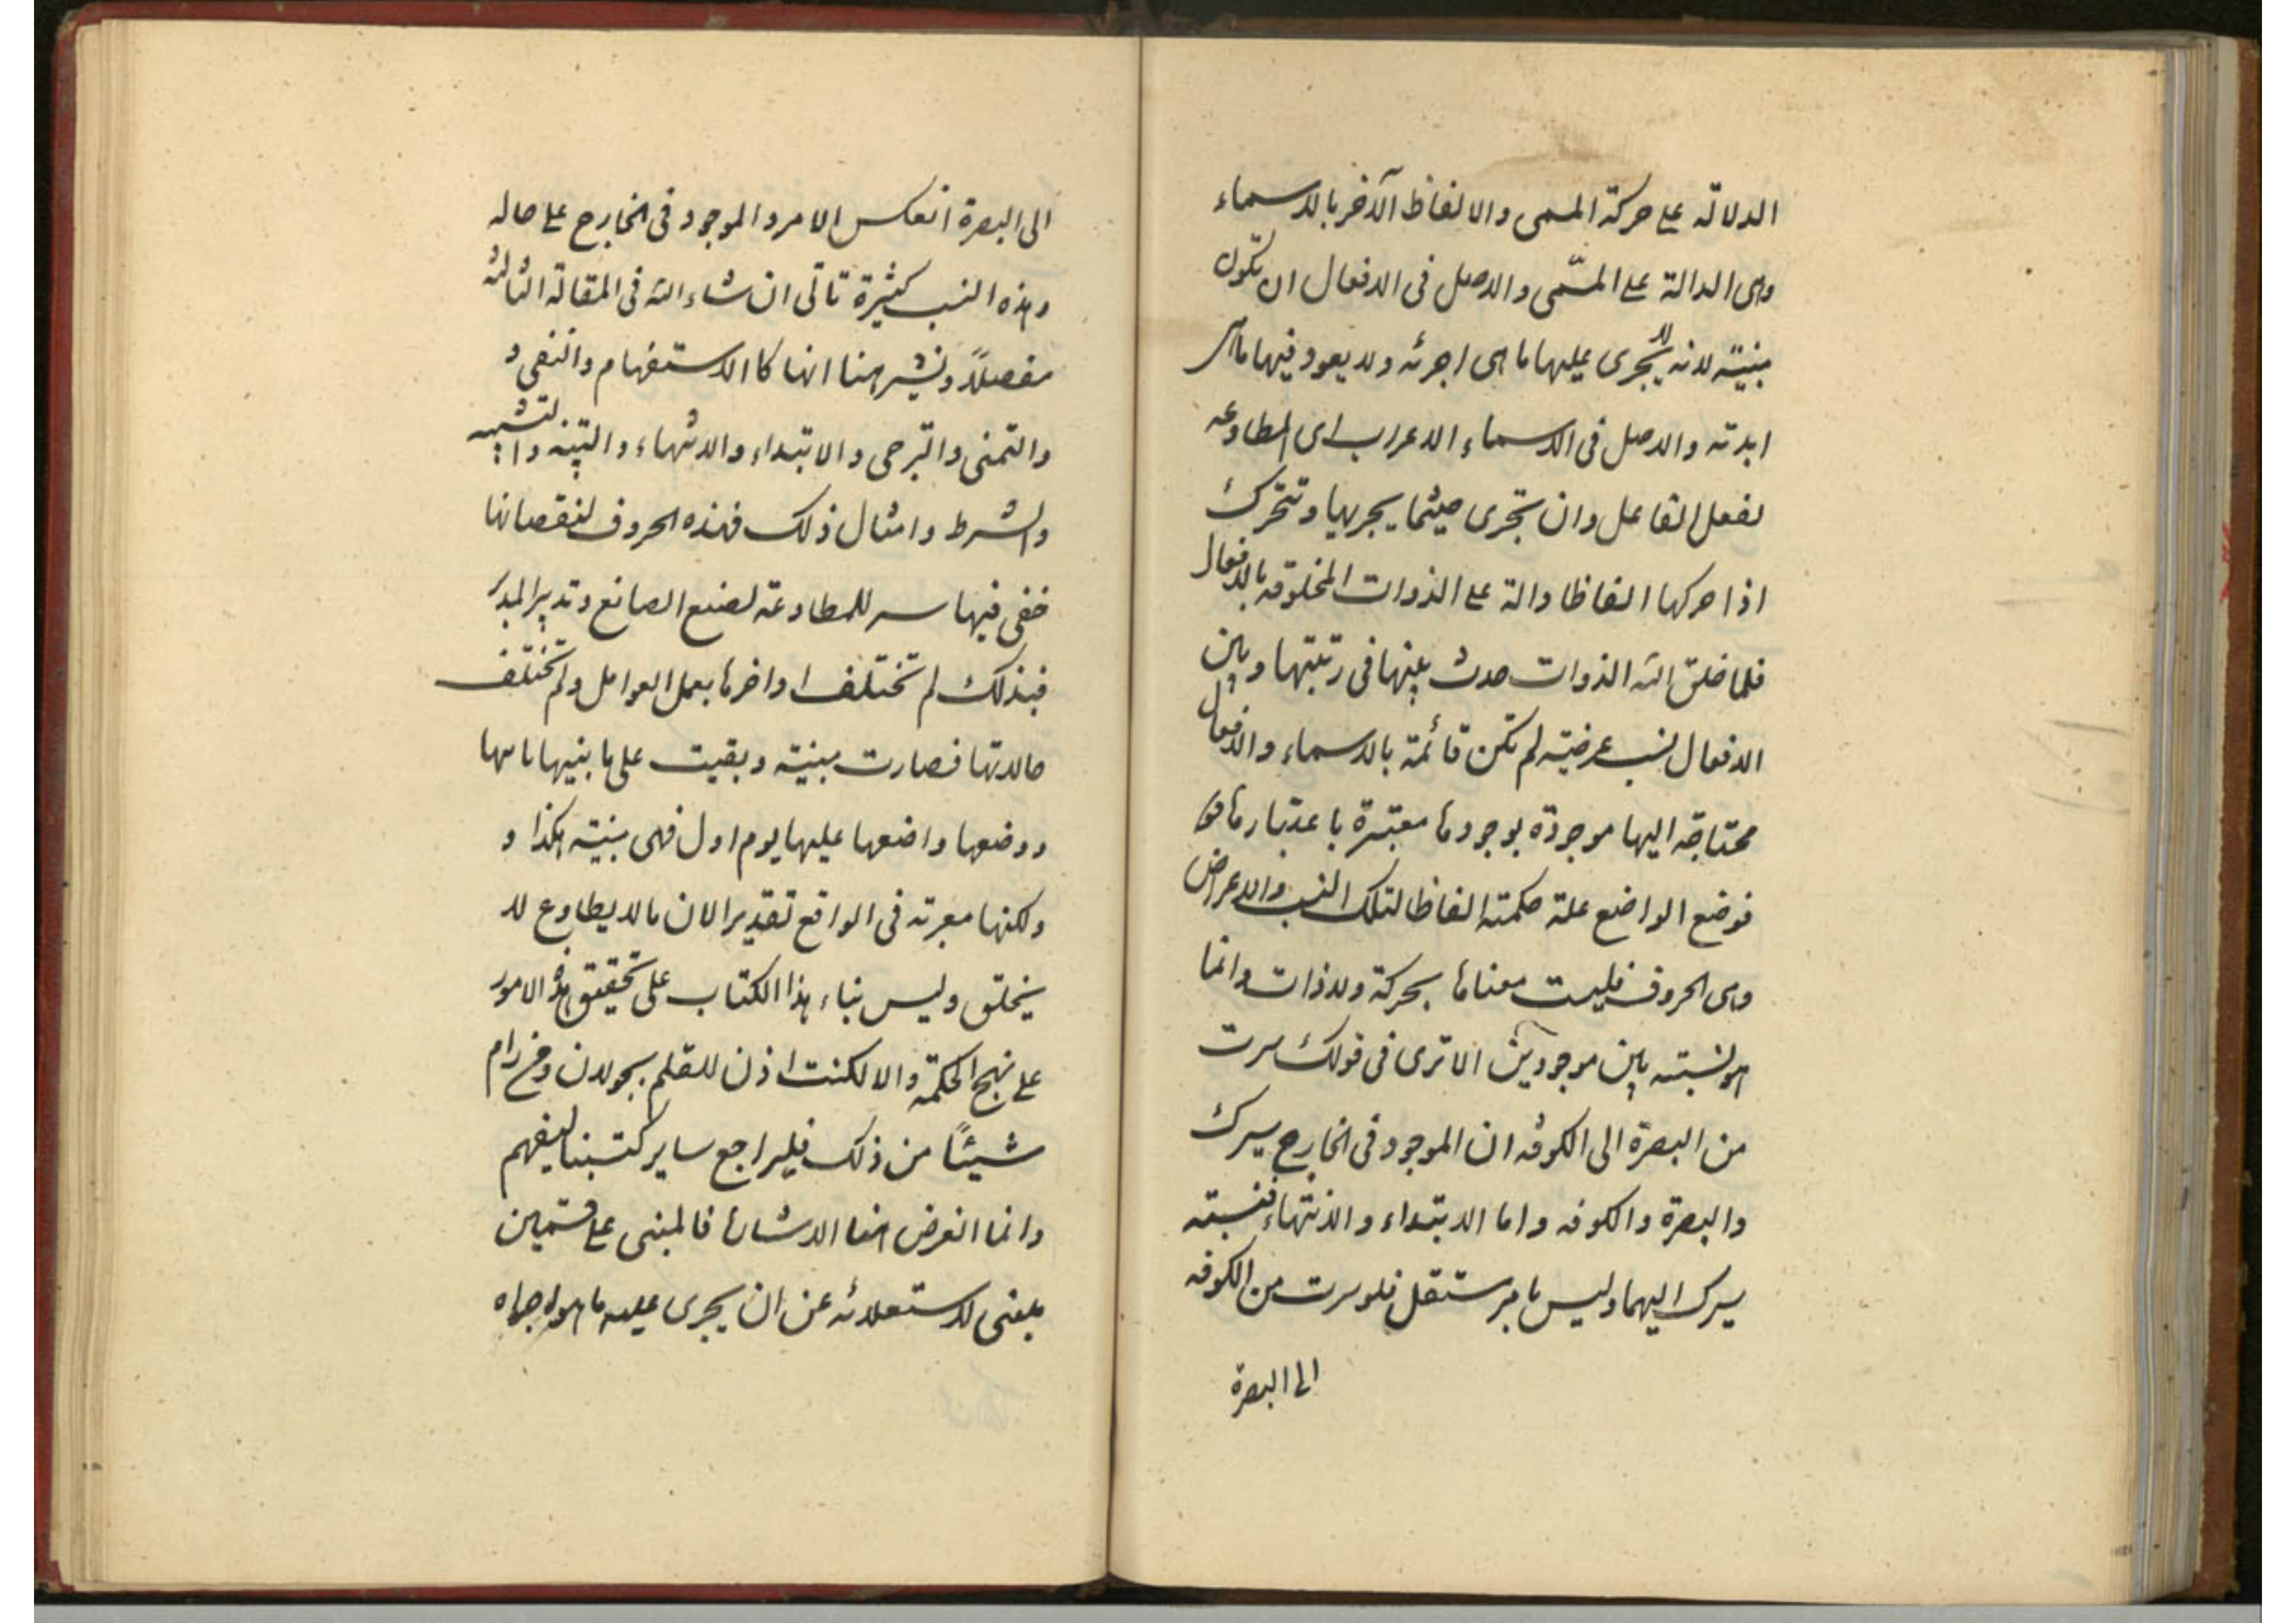 الدلالة على حركة المسمى والالفاظ الآخر بالاسماء
وهى الدالة على المسّمى والاصل فى الافعال ان تكون
مبنية لانه لا يجرى عليها ما هى اجرئه ولا يعود فيها ما هى
ابدته والاصل فى الاسماء الاعراب اى المطاوعه
لفعل الفاعل وان تجرى حيثما يجريها وتتحرك
اذا حركها الفاظا دالة على الذوات المخلوقه بالافعال
فلما خلق الله الذوات حدث بينها فى رتبتها وبين
الافعال نسب عرضية لم تكن قائمة بالاسماء والافعال
محتاجة اليها موجودة بوجودها معتبرة باعتبارها
فوضع الواضع علة حكمته الفاظا لتلك النسب والاعراض
وهى الحروف فليست معناها بحركة ولا ذات وانما
هو نسبته بين موجودين الا ترى فى قولك سرت
من البصرة الى الكوفه ان الموجود فى الخارج سيرك
والبصرة والكوفه واما الابتداء والانتهاء فنسبته
سيرك اليهما وليس بامر مستقل فلو سرت من الكوفه
الى البصرة
الى البصرة انعكس الامر والموجود فى الخارج على حاله
وهذه النسب كثيرة تاتى ان شاء الله فى المقالة الثالثه
مفصلاً ونشير هنا انها كالاستفهام والنفى و
والتمنى والترجى والابتداء والانتهاء والتنبيه والتشبيه
والشرط وامثال ذلك فهذه الحروف لنقصانها
خفى فيها سر للمطاوعة لصنع الصانع وتدبير المدبر
فبذلك لم تختلف اواخرها بعمل العوامل ولم تختلف
حالاتها فصارت مبنية وبقيت على ما بنيها بانيها
ووضعها واضعها عليها يوم اول فهى مبنية هكذا و
ولكنها معربة فى الواقع تقديرا لان ما لا يطاوع لا
ينخلق وليس بناء هذا الكتاب على تحقيق هذه الامور
على نهج الحكمة والا لكنت اذن للقلم بجولان ومن رام
شيئًا من ذلك فليراجع ساير كتبنا ليفهم
وانما الغرض هنا الاشارة فالمبنى على قسمين
مبنى لاستعلائه عن ان يجرى عليه ما هو اجراه